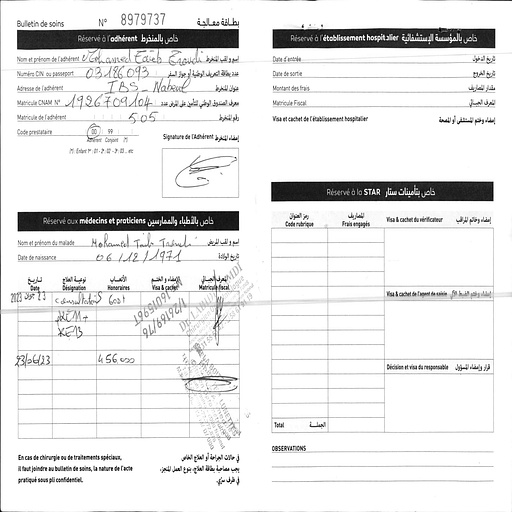 Bulletin de soins N° 8979737 بطاقة معالجة
Réservé à l'adhérent خاص بالمنخرط
Nom et prénom de l'adhérent Mohamed Taieb اسم و لقب المنخرط
Numéro CIN ou passeport 03186093 عدد بطاقة التعريف الوطنية أو جواز السفر
Adresse de l'adhérent IBS - Nabeul عنوان المنخرط
Matricule CNAM N° 1926709104 معرف الصندوق الوطني للتأمين على المرض عدد
Matricule de l'adhérent 505 رقم المنخرط
Code prestataire 00 99
Adhérent Conjoint (*)
(*) : Enfant 1er : 01 - 2e : 02 - 3e : 03... etc
Signature de l'Adhérent إمضاء المنخرط
Réservé aux médecins et praticiens خاص بالأطباء والممارسين
Nom et prénom du malade Mohamed Taieb اسم و لقب المريض
Date de naissance 06/12/1971 تاريخ الولادة
تاريخ Date
نوعية العلاج Désignation
الأتعاب Honoraires
الإمضاء و الختم Visa & cachet
المعرف الجبائي Matricule fiscal
23/06/23 456,000
En cas de chirurgie ou de traitements spéciaux,
il faut joindre au bulletin de soins, la nature de l'acte
pratiqué sous pli confidentiel.
في حالات الجراحة أو العلاج الخاص
يجب مصاحبة بطاقة العلاج، بنوع العمل المنجز،
في ظرف سري.
Réservé à l'établissement hospitalier خاص بالمؤسسة الإستشفائية
Date d'entrée تاريخ الدخول
Date de sortie تاريخ الخروج
Montant des frais مقدار المصاريف
Matricule Fiscal المعرف الجبائي
Visa et cachet de l'établissement hospitalier إمضاء وختم المستشفى أو المصحة
Réservé à la STAR خاص بتأمينات ستار
رمز العنوان Code rubrique
المصاريف Frais engagés
Visa & cachet du vérificateur إمضاء وخاتم المراقب
Visa & cachet de l'agent de saisie
Décision et visa du responsable قرار وإمضاء المسؤول
Total الجملة
OBSERVATIONS